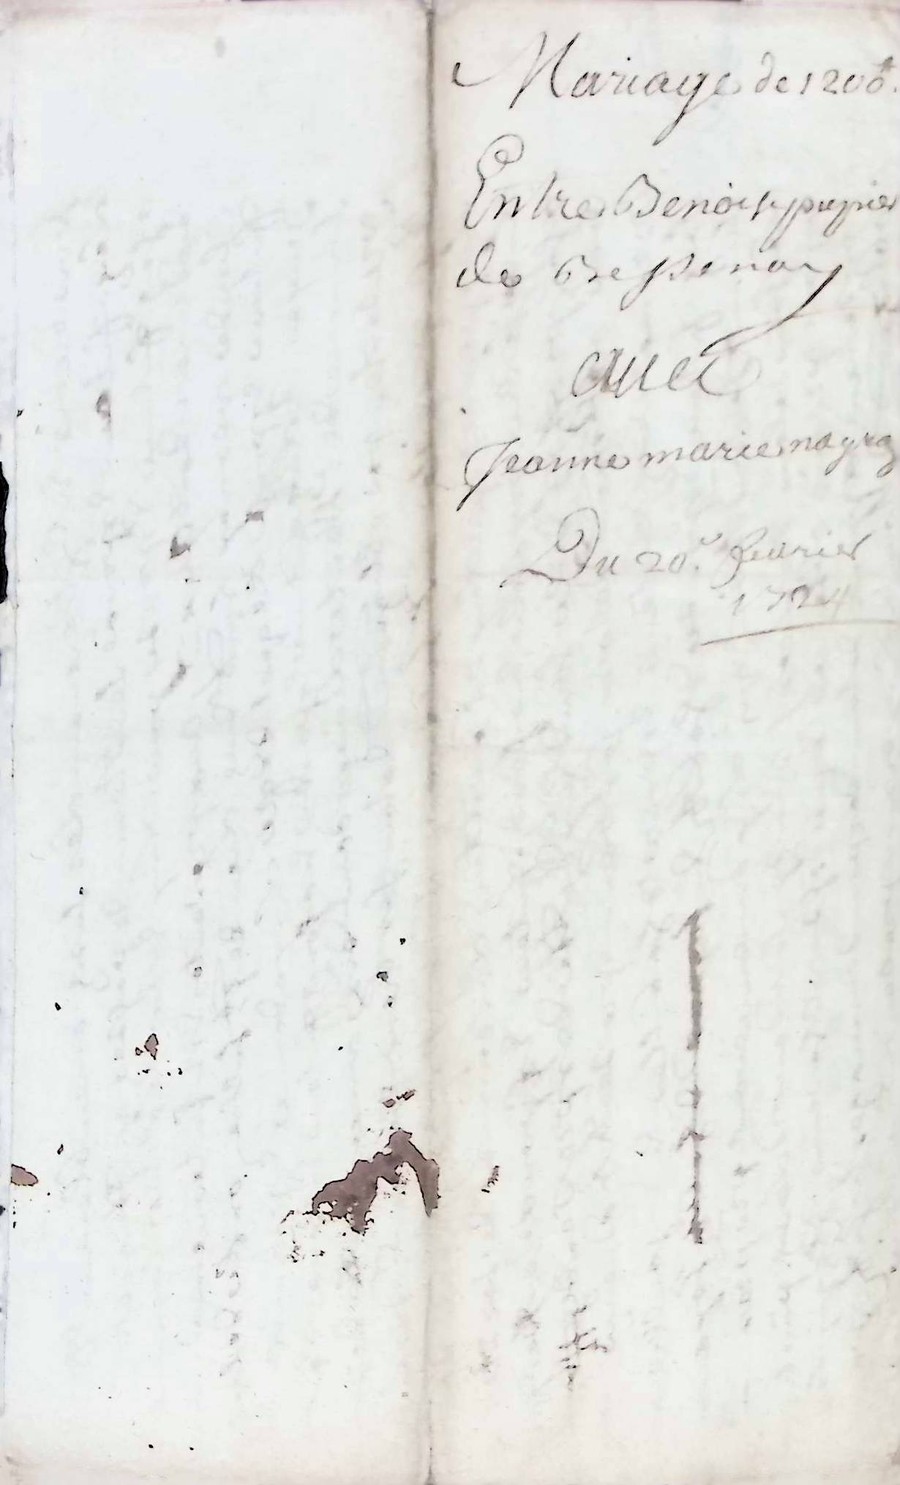 Mariage de 1200#.
Entre Benoist pupier
de Bessenay
avec
Jeanne marie mayra
Du 20e. fevrier
1724